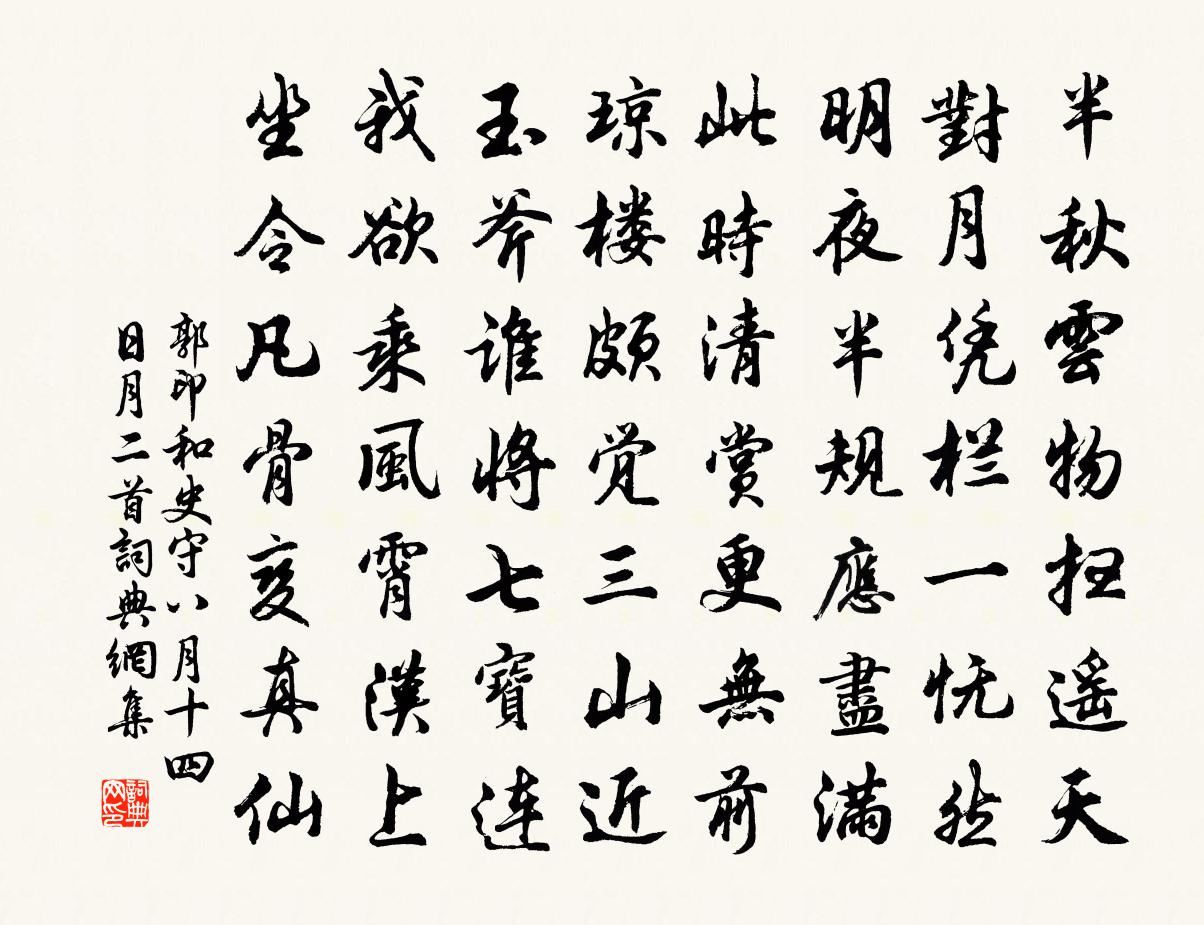 半秋雲物扫遥天
對月凭栏一恍然
明夜半規應盡滿
此時清賞更無前
琼楼頗覚三山近
玉斧谁將七寶連
我欲乘風霄漢上
坐令凡骨变真仙
郭印和史守八月十四
日月二首詞典網集
詞典网印